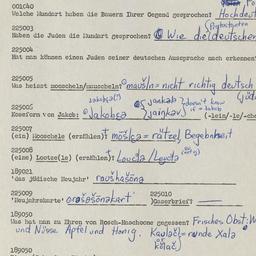 001040
Welche Mundart haben die Bauern Ihrer Gegend gesprochen? Hochdeut
225003
Haben die Juden die Mundart gesprochen? Wie die deutschen
225004
Hat man können einen Juden seiner deutschen Aussprache nach erkennen?
225005
Was heisst mooscheln/muuscheln? maušln = nicht richtig deutsch
225006
Koseform von Jakob: Jakobša jankab don't know (-lein/-le/-che
225007
(ein) Mooschele (erzählen)? mošlga = rätzel, Begebnheit
225008
(eine) Lootze(le) (erzählen)? Loucta / Leucta
189021
'das jüdische Neujahr' roušhašōna
225009 225010
'Neujahrskarte' Gaserbrief?
189050
Was hat man zu Ehren von Rosch-Haschoone gegessen? Frisches Obst: W
und Nüsse Apfel und Honig. = runde Xala
189050